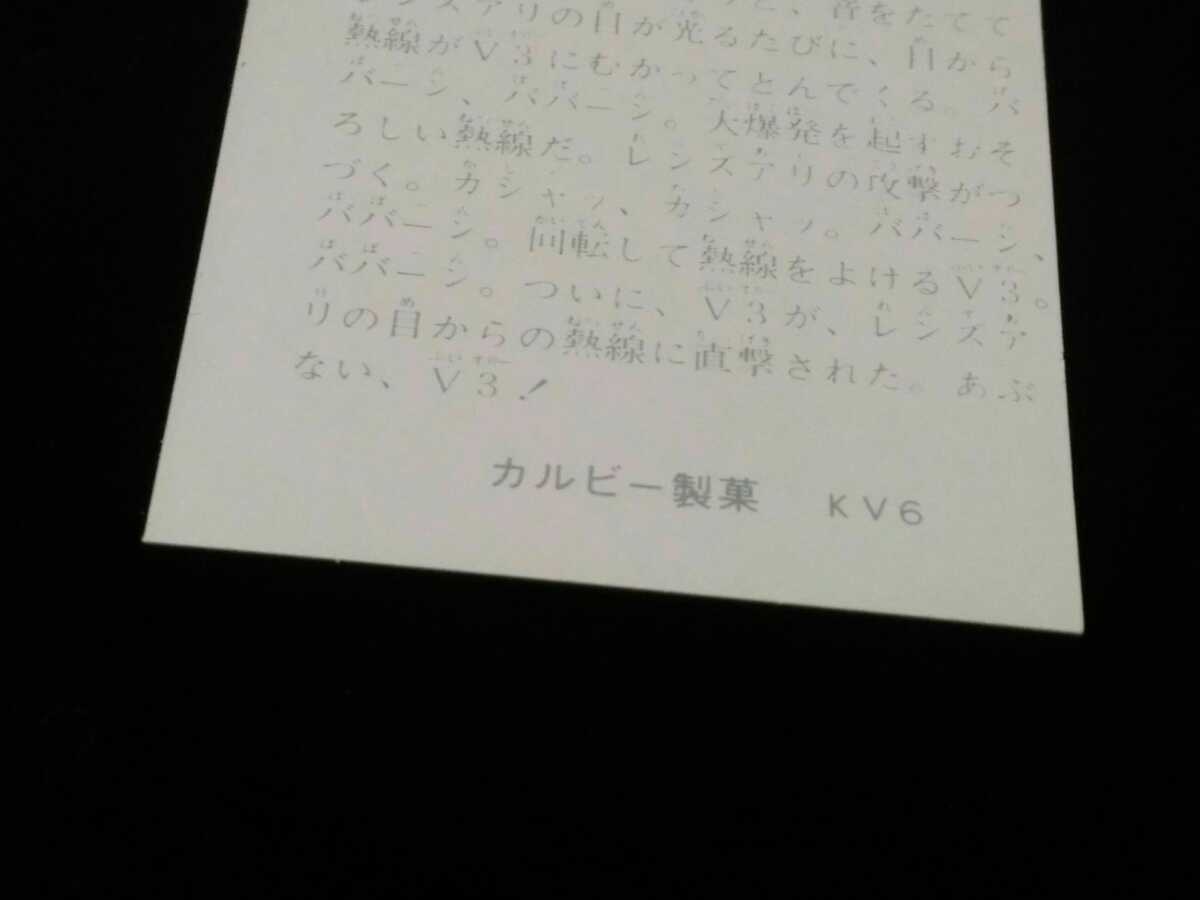 と、音をたてて
レンズアリの目が光るたびに、目から
熱線がV3にむかってとんでくる。バ
バーン、ババーン。大爆発を起すおそ
ろしい熱線だ。レンズアリの攻撃がつ
づく。カシャッ、カシャッ。ババーン、
ババーン。回転して熱線をよけるV3。
ババーン。ついに、V3が、レンズア
リの目からの熱線に直撃された。あぶ
ない、V3！
カルビー製菓 KV6